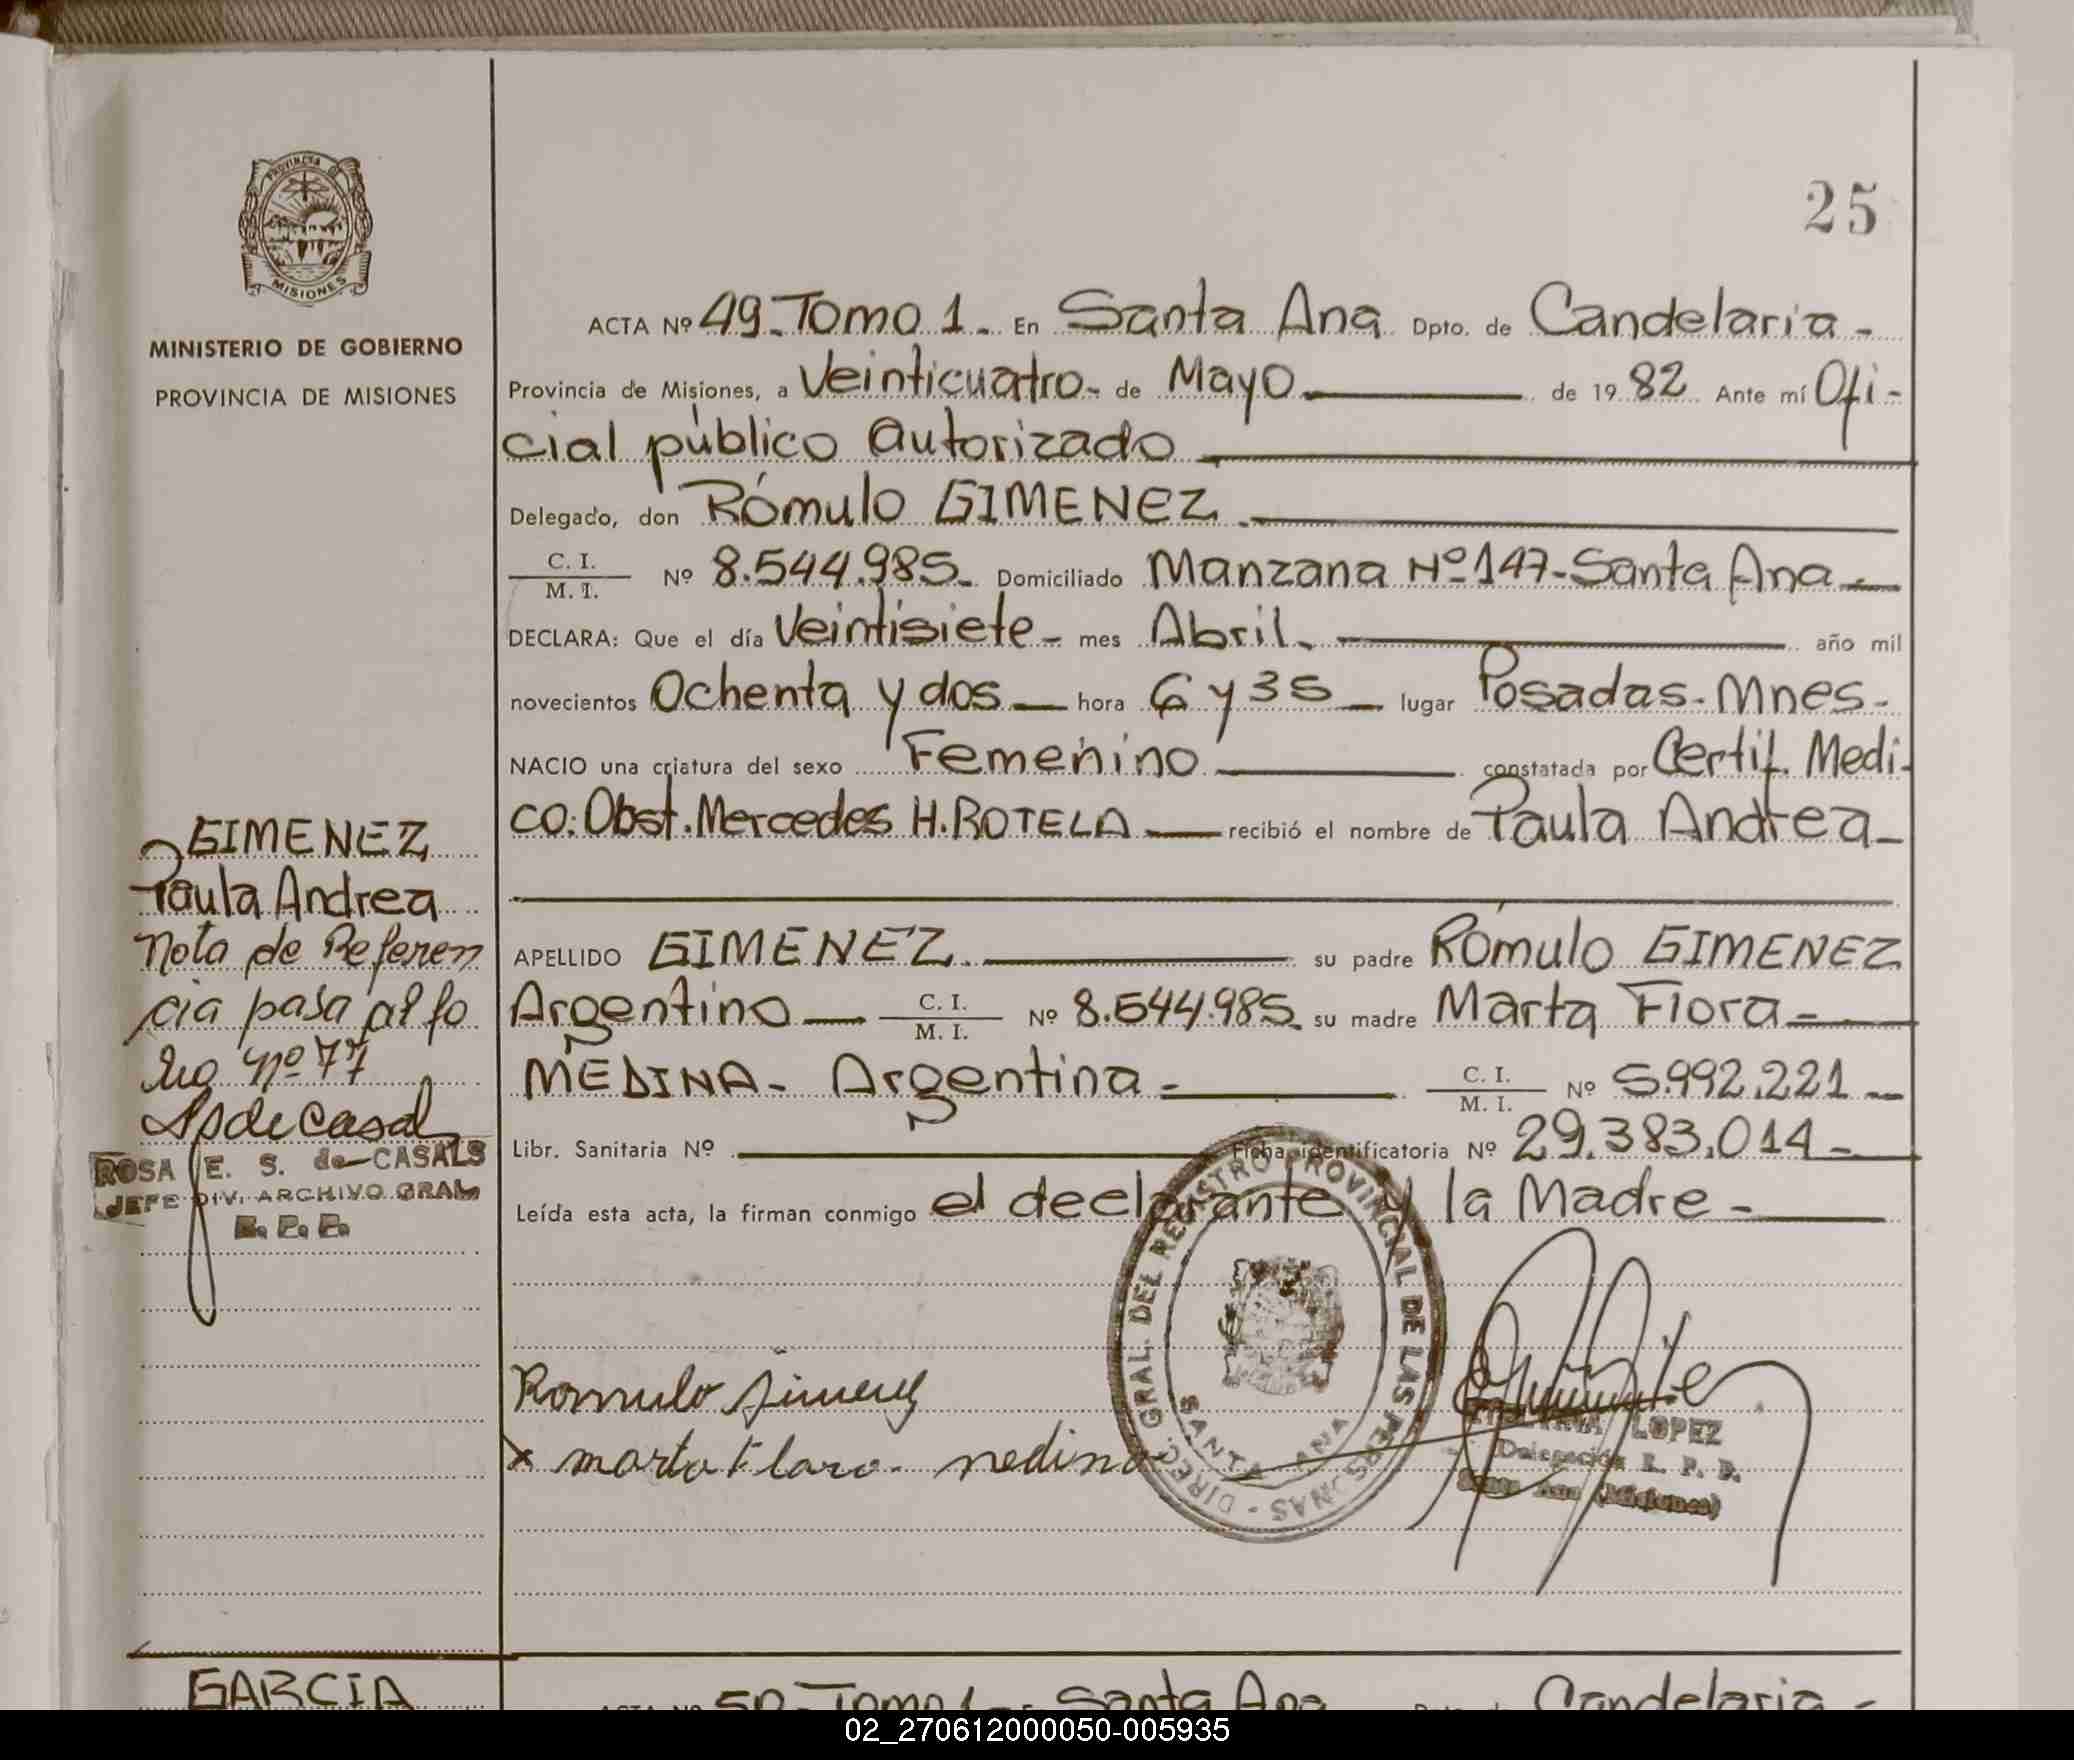 PROVINCIA
MISIONES
MINISTERIO DE GOBIERNO
PROVINCIA DE MISIONES
GIMENEZ
Paula Andrea
Nota de Referen
cia pasa al fo
lio nº 77
ROSA E. S. de CASALS
JEFE DIV. ARCHIVO GRAL
R. P. P.
GARCIA
25
ACTA Nº 49-Tomo 1- En Santa Ana Dpto. de Candelaria-
Provincia de Misiones, a Veinticuatro- de Mayo de 19 82 Ante mí Ofi-
cial público autorizado
Delegado, don Rómulo GIMENEZ
C. I. / M. I. Nº 8.544.985- Domiciliado Manzana Nº 147-Santa Ana-
DECLARA: Que el día Veintisiete- mes Abril- año mil
novecientos Ochenta y dos hora 6 y 35 lugar Posadas-Mnes-
NACIO una criatura del sexo Femenino constatada por Certif. Medi-
co: Obst. Mercedes H. ROTELA recibió el nombre de Paula Andrea-
APELLIDO GIMENEZ. su padre Rómulo GIMENEZ
Argentino C. I. / M. I. Nº 8.544.985- su madre Marta Flora-
MEDINA- Argentina- C. I. / M. I. Nº 5.992.221
Libr. Sanitaria Nº Ficha identificatoria Nº 29.383.014-
Leída esta acta, la firman conmigo el declarante y la Madre-
DIREC. GRAL. DEL REGISTRO PROVINCIAL DE LAS PERSONAS -
SANTA ANA
Romulo Jimenez
x marta Flara. medina
LOPEZ
Delegación R. P. P.
Santa Ana (Misiones)
ACTA Nº 50-Tomo 1- En Santa Ana Dpto. de Candelaria-
02_270612000050-005935